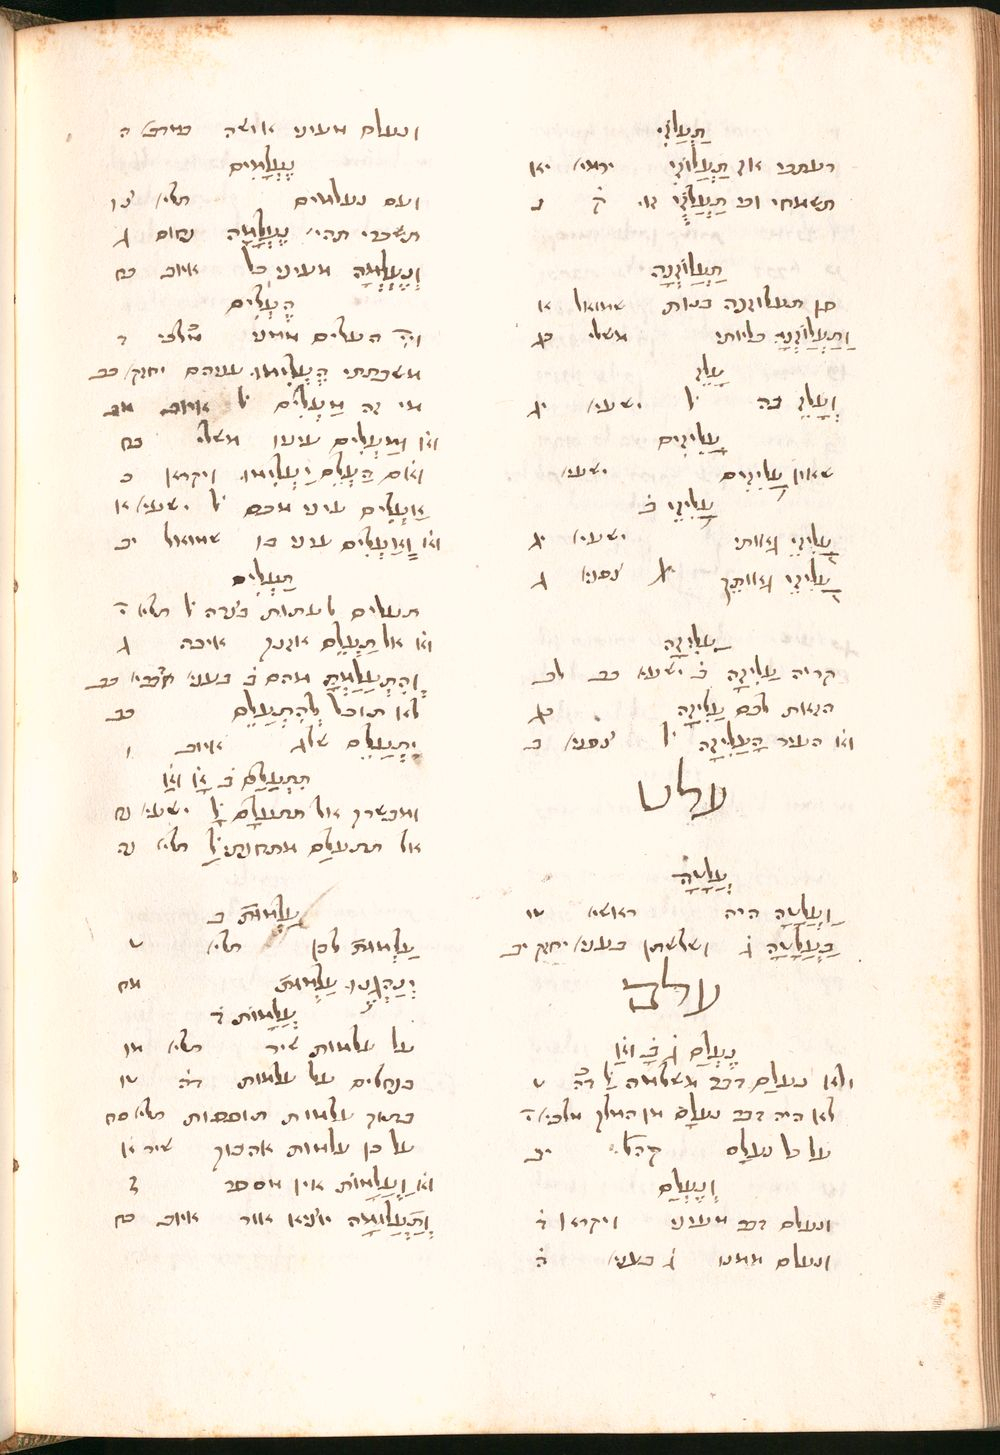 תַּעֲלֹזִי
רעתכי אז תַּעֲלֹזִי ירמי׳ יא
תשמחי וכי תַעֲלְזִי
תַּעֲלֹזְנָה
פן תעלוזנה בנות שמואל א
וְתַעֲלֹזְנָה כליותי משלי כג
עָלֵז
וְעָלֵז בה ל׳ ישעי׳ יג
עַלִּיזִים
שאון עַלִּיזִים ישעי׳
עַלִּיזֵי ב׳
עַלִּיזֵי גאותי ישעי׳ יג
עַלִּיזֵי גאותך צפני׳ ג
עַלִּיזָה
קריה עַלִּיזָה ב׳ ישעי׳ כב לב
הזאת לכם עַלִּיזָה כג
וא׳ העיר הָעַלִּיזָה ל׳ צפני׳ ב
עלט
עֲלָטָה
וַעֲלָטָה היה ראשי׳ טו
בָּעֲלָטָה ג׳ ושלשתן בעני׳ יחזק׳ יב
עלם
נֶעְלַם
ולא נעלם דבר משלמה ט
לא היה דבר נעלם מן המלך מלכי׳
על כל נעלם קהל׳ יב
וְנֶעְלַם
ונעלם דבר מעיני ויקרא ד
ונעלם ממנו ג׳ בעני׳ ה
ונעלם מעיני אישה במדבר ה
נֶעְלָמִים
ועם נעלמים תלי׳
תשכרי תהי׳ נַעֲלָמָה נחום ג
וְנֶעֶלְמָה מעיני כל איוב כח
הֶעְלִים
ויי׳ העלים ממני מלכי׳ ד
משבתתי הֶעְלִימוּ עניהם יחזק׳ כב
מי זה מַעְלִים ל׳ איוב מב
וא׳ וּמַעְלִים עיניו משלי כח
ואם הַעְלֵם יַעְלִימוּ ויקרא כ
אַעְלִים עיני מכם ל׳ ישעי׳ א
וא׳ וְאַעְלִים עיני בו שמואל יב
תַּעְלִים
תעלים לעתות בצרה ל׳ תלי׳
וא׳ אל תַּעְלֵם אזנך איכה ג
וְהִתְעַלַּמְתָּ מהם ב׳ בעני׳ כב
לא תוכל לְהִתְעַלֵּם כב
יִתְעַלֵּם שלג איוב ו
תִּתְעַלַּם
ומבשרך אל תתעלם ל׳ ישעי׳ נח
אל תתעלם מתחנתי ל׳ תלי׳ נה
עַלְמוּת ב
עַלְמוּת לבן תלי׳ ט
יְנַהֲגֵנוּ עַלְמוּת מח
עֲלָמוֹת
על עלמות שיר תלי׳ מו
בנבלים על עלמות טו
בתוך עלמות תופפות תלי׳ סח
על כן עלמות אהבוך שיר א
וא׳ וַעֲלָמוֹת אין מספר
וְתַעֲלֻמָהּ יוציא אור איוב כח